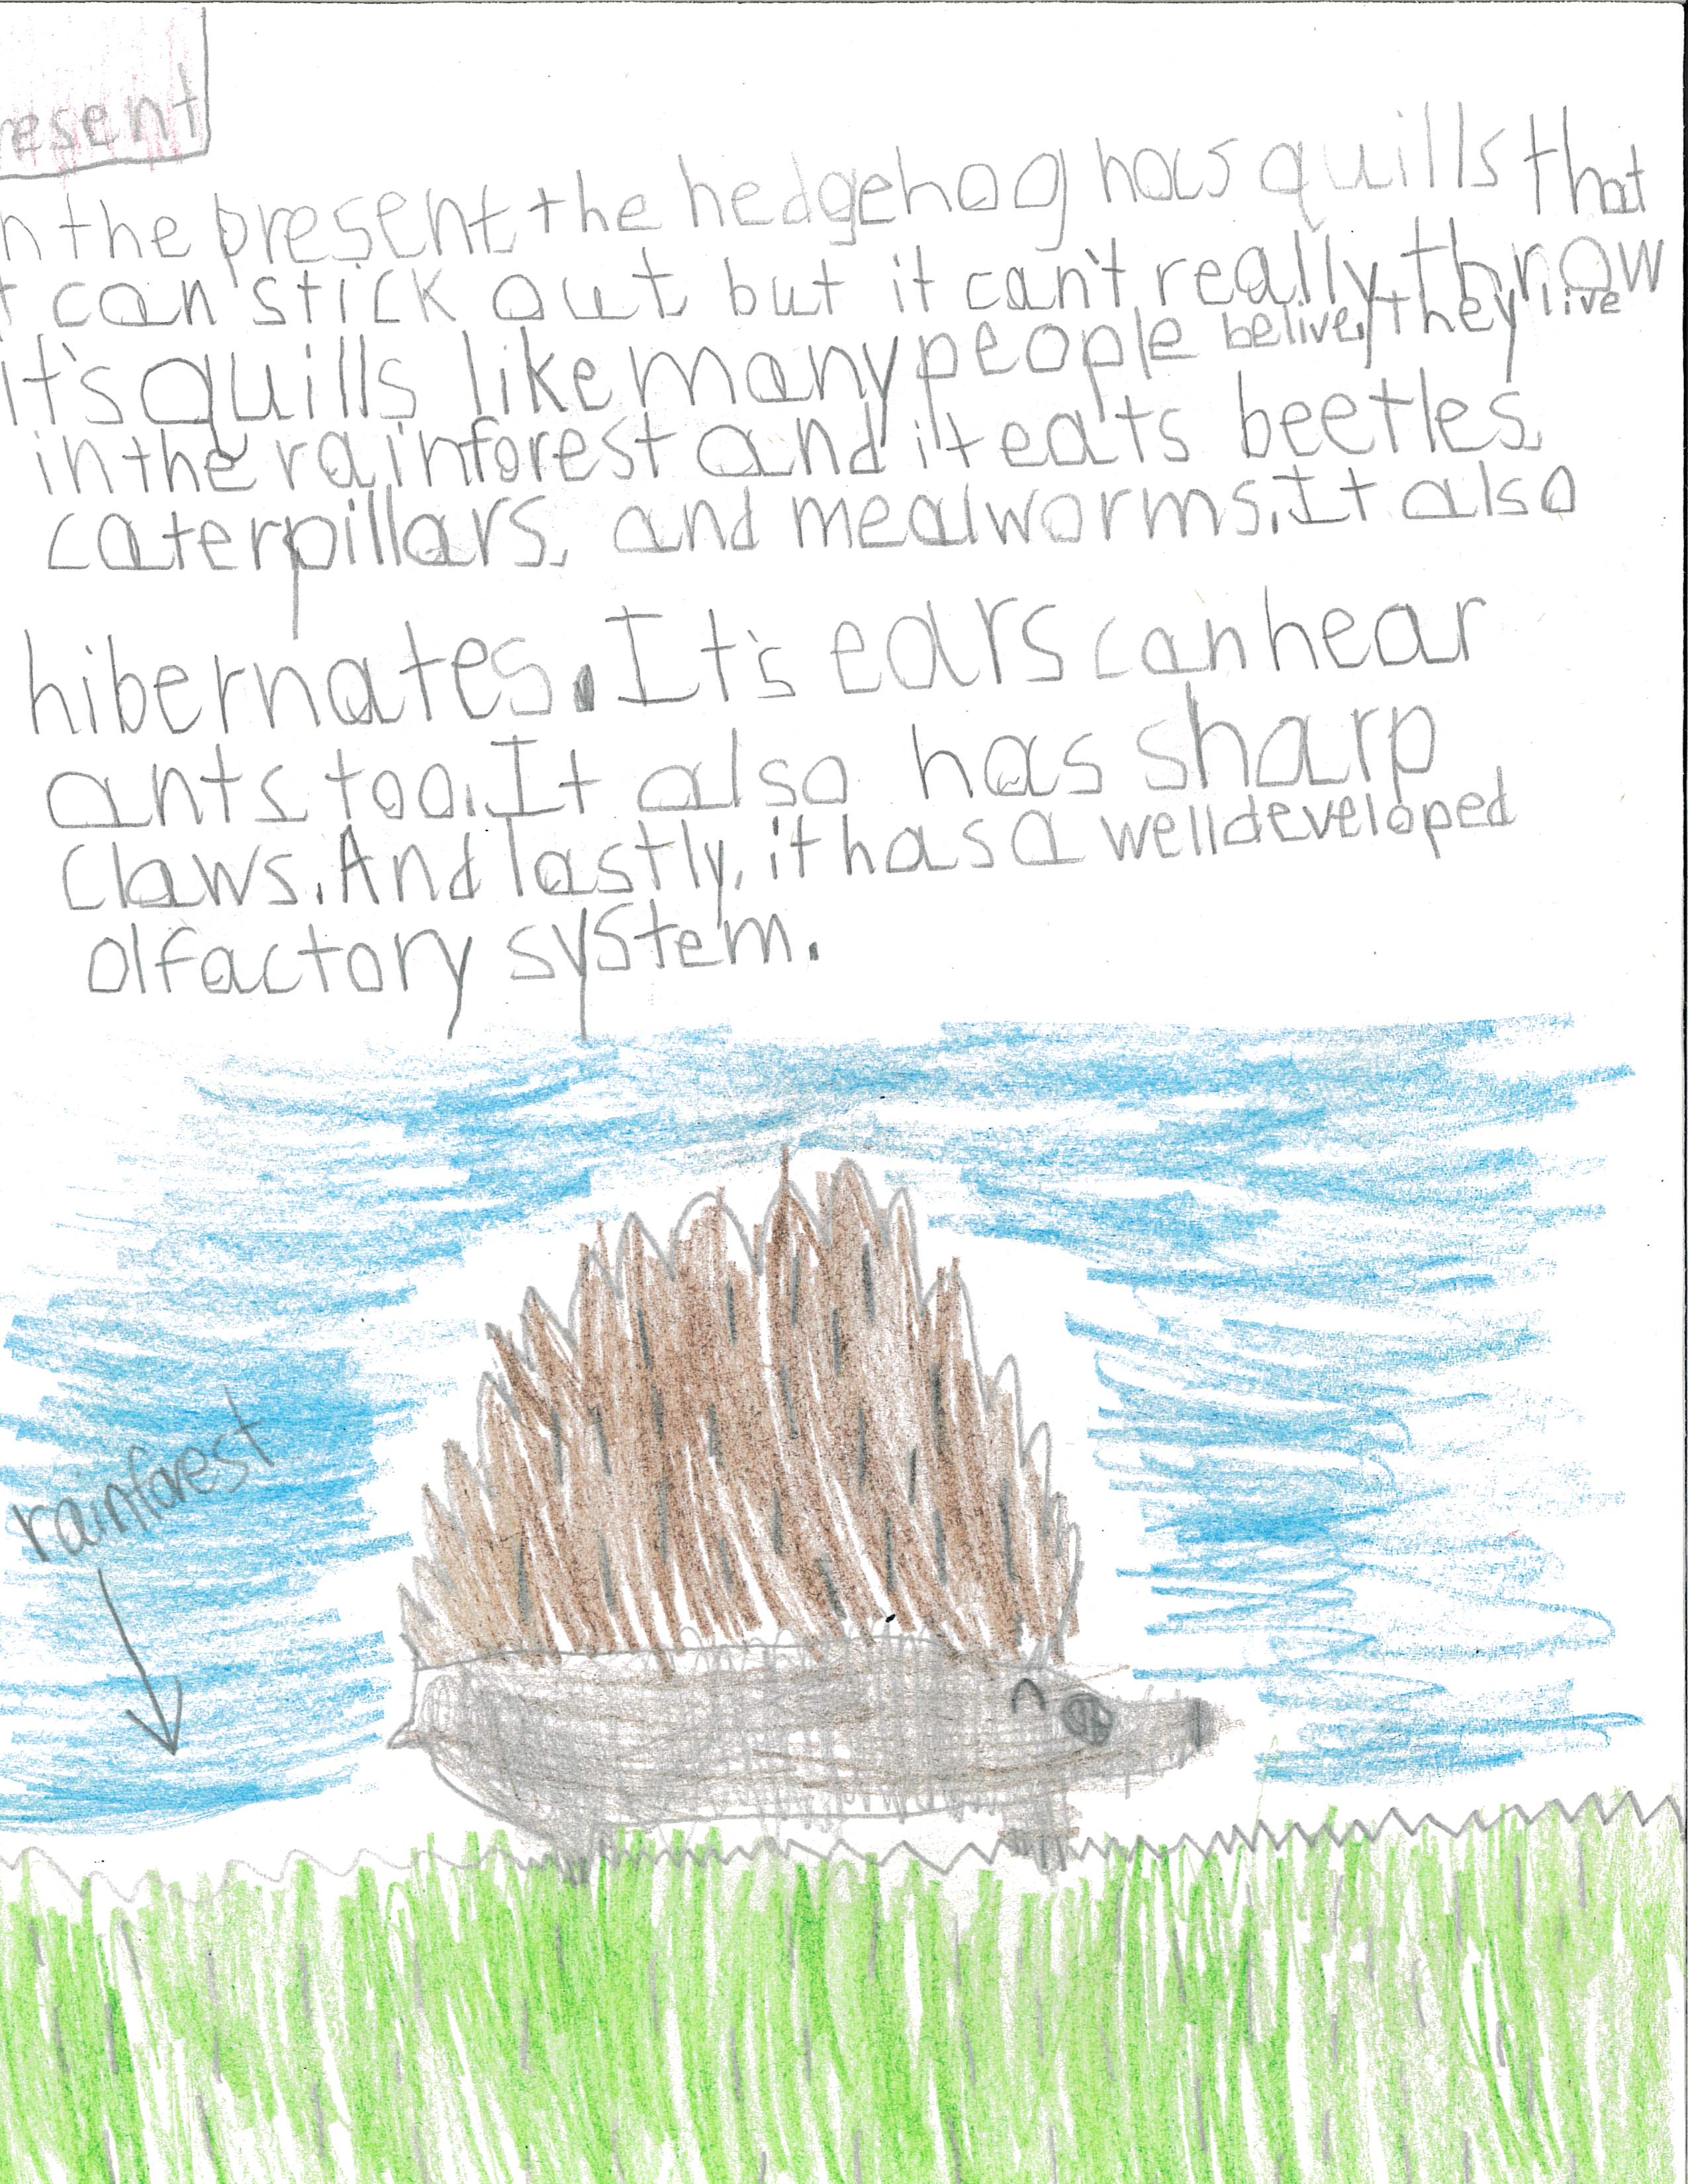 resent
n the present the hedgehog has quills that
t can stick out but it can't really throw
it's quills like many people belive, they live
in the rainforest and it eats beetles,
caterpillars, and mealworms. It also
hibernates. It's ears can hear
ants too. It also has sharp
claws. And lastly, it has a well developed
olfactory system.
rainforest